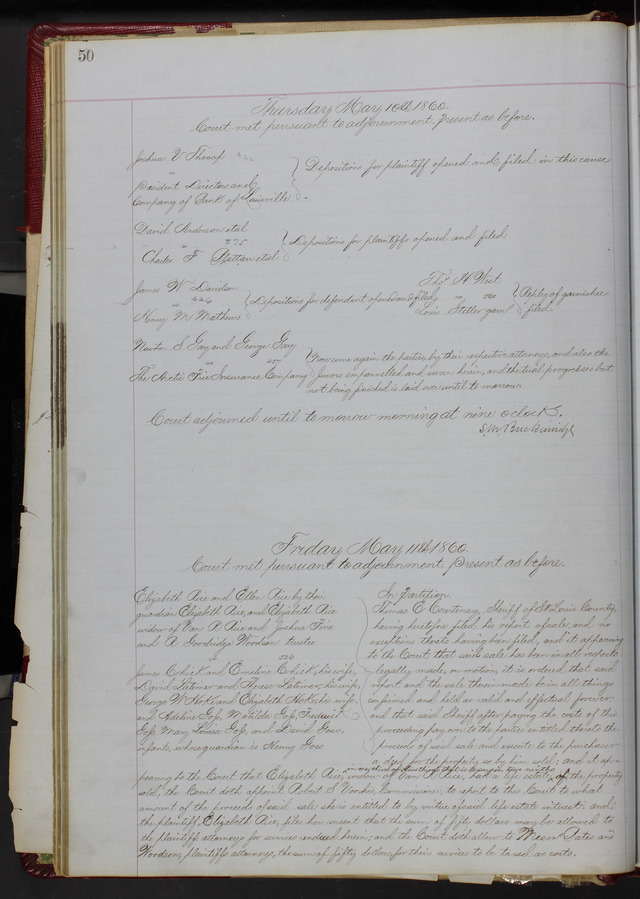 50
Thursday May 10th 1860.
Court met pursuant to adjournment, present as before.
Joshua V Throop
vs
President Directors and
Company of Bank of Louisville
Depositions for plaintiff opened and filed in this cause
David Anderson etal
275
Charles F etal
Depositions for plaintiffs opened and filed
James W Davidson
vs
Henry M Mathews
Depositions for defendant opened and filed
Thos H West
vs
Louis Steller garn
Reply of garnishee
filed.
Newton S Gay and George Gay
vs
The Arctic Fire Insurance Company
Now come again the parties by their respective attorneys, and also the
Jurors empannelled and sworn herein, and the trial progresses but
not being finished is laid over until to morrow.
Court adjourned until to morrow morning at nine o'clock.
Friday May 11th 1860.
Court met pursuant to adjournment, present as before.
Elizabeth Rice and Ellen Rice by their
guardian Elizabeth Rice, and Elizabeth Rice
widow of Van R Rice and Joshua
and A Goodridge Woodson trustee
vs 524
James Cohick and Emeline Cohick, his wife,
David Latimer and Therese Latimer, his wife,
George W Hoke and Elizabeth Hoke, his wife,
and Adeline Goss, Matilda Goss, Frederick
Goss, Mary Louisa Goss, and David Goss,
infants, whose guardian is Henry Goss
In Partition.
Thomas E Courtenay, Sheriff of St Louis County,
having heretofore filed his report of sale, and no
exceptions thereto having been filed, and it appearing
to the Court that said sale has been in all respects
legally made, on motion, it is ordered that said
report and the sale therein made be in all things
confirmed and held as valid and effectual forever
and that said Sheriff after paying the costs of this
proceeding pay over to the parties entitled thereto the
proceeds of said sale and execute to the purchaser
a deed for the property so by him sold; and it ap-
pearing to the Court that Elizabeth Rice, widow of Van R Rice, had a life estate of the property
sold, the Court doth appoint Robert S Voorhis, Commissioner, to report to this Court to what
amount of the proceeds of said sale she is entitled to by virtue of said life estate interest: and
the plaintiff, Elizabeth Rice, files her consent that the sum of fifty dollars may be allowed to
the plaintiffs attorneys for services rendered herein; and the Court doth allow to Messrs Bates and
Woodson, plaintiffs attorneys, the sum of fifty dollars, for their services to be taxed as costs.